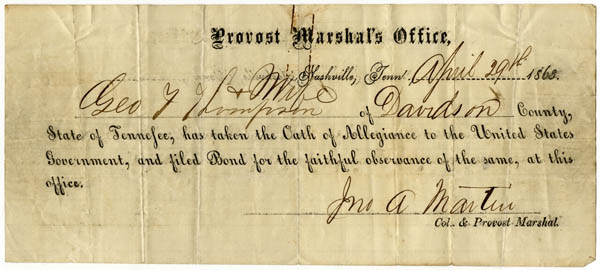 Provost Marshal's Office,
Nashville, Tenn. April 29th 1863.
Geo F Thompson & Wife of Davidson County,
State of Tennessee, has taken the Oath of Allegiance to the United States
Government, and filed Bond for the faithful observance of the same, at this
office.
Jno A Martin
Col. & Provost-Marshal.